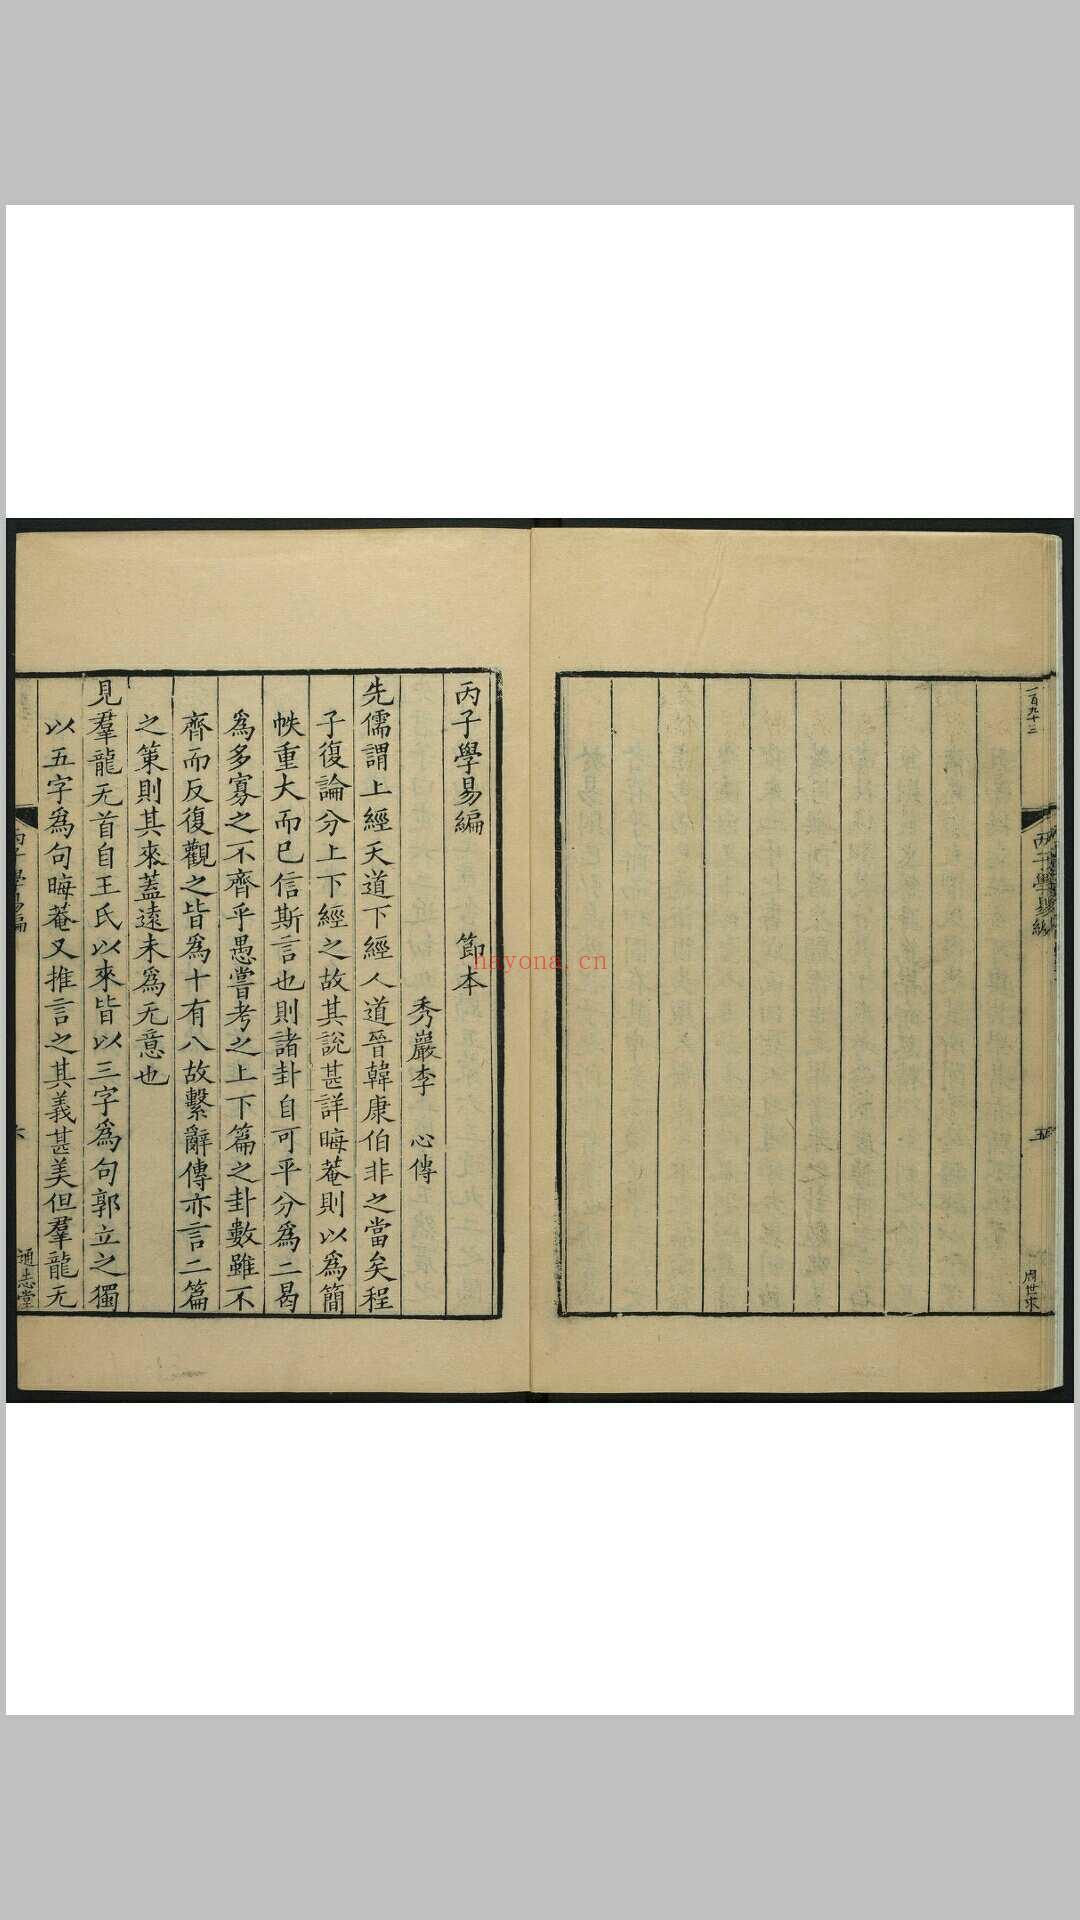 一百九十三
丙子學易編
五
周世求
丙子學易編 節本
秀巖李 心傳
先儒謂上經天道下經人道晉韓康伯非之當矣程
子復論分上下經之故其說甚詳晦菴則以爲簡
帙重大而已信斯言也則諸卦自可平分爲二曷
爲多寡之不齊乎愚嘗考之上下篇之卦數雖不
齊而反復觀之皆爲十有八故繫辭傳亦言二篇
之策則其來蓋遠未爲无意也
見羣龍无首自王氏以來皆以三字爲句郭立之獨
以五字爲句晦菴又推言之其義甚美但羣龍无
丙子學易編
六
通志堂
nayona.cn